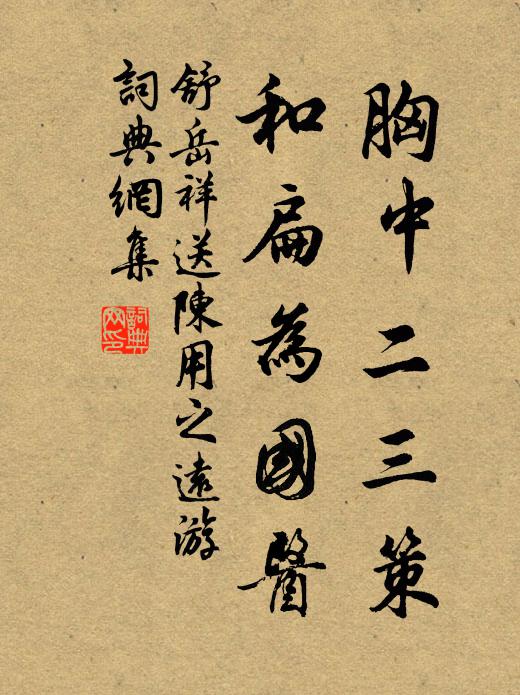 胸中二三策
和扁為國醫
舒岳祥送陳用之遠游
詞典網集
詞典
网印